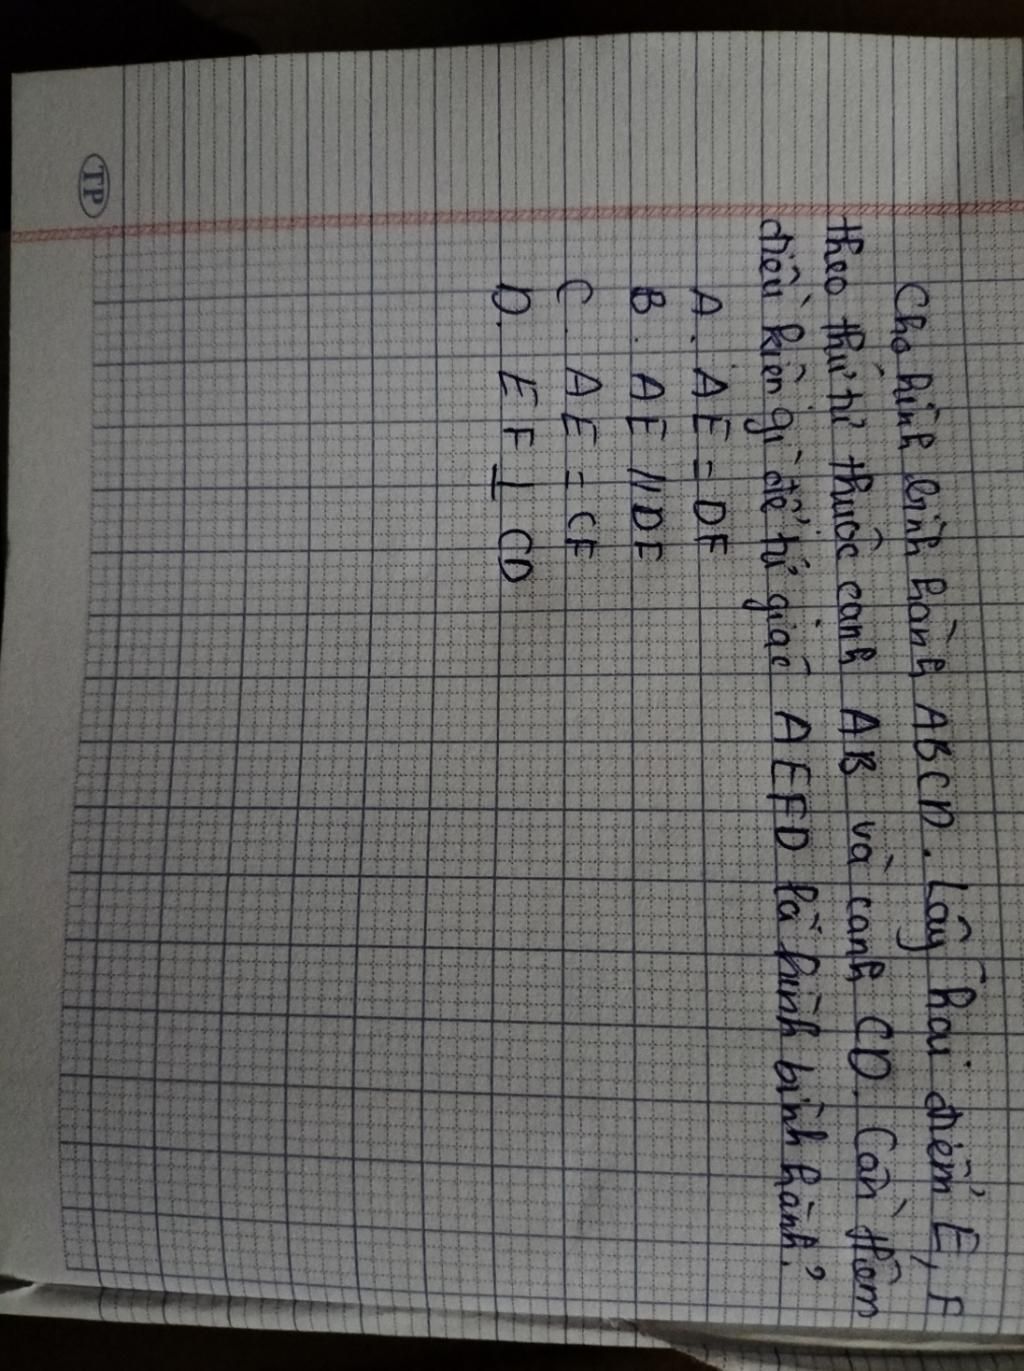 Cho hình bình hành ABCD. Lấy hai điểm E, F
theo thứ tự thuộc cạnh AB và cạnh CD. Cần thêm
điều kiện gì để tứ giác AEFD là hình bình hành?
A. AE = DF
B. AE // DF
C. AE = CF
D. EF ⊥ CD
TP